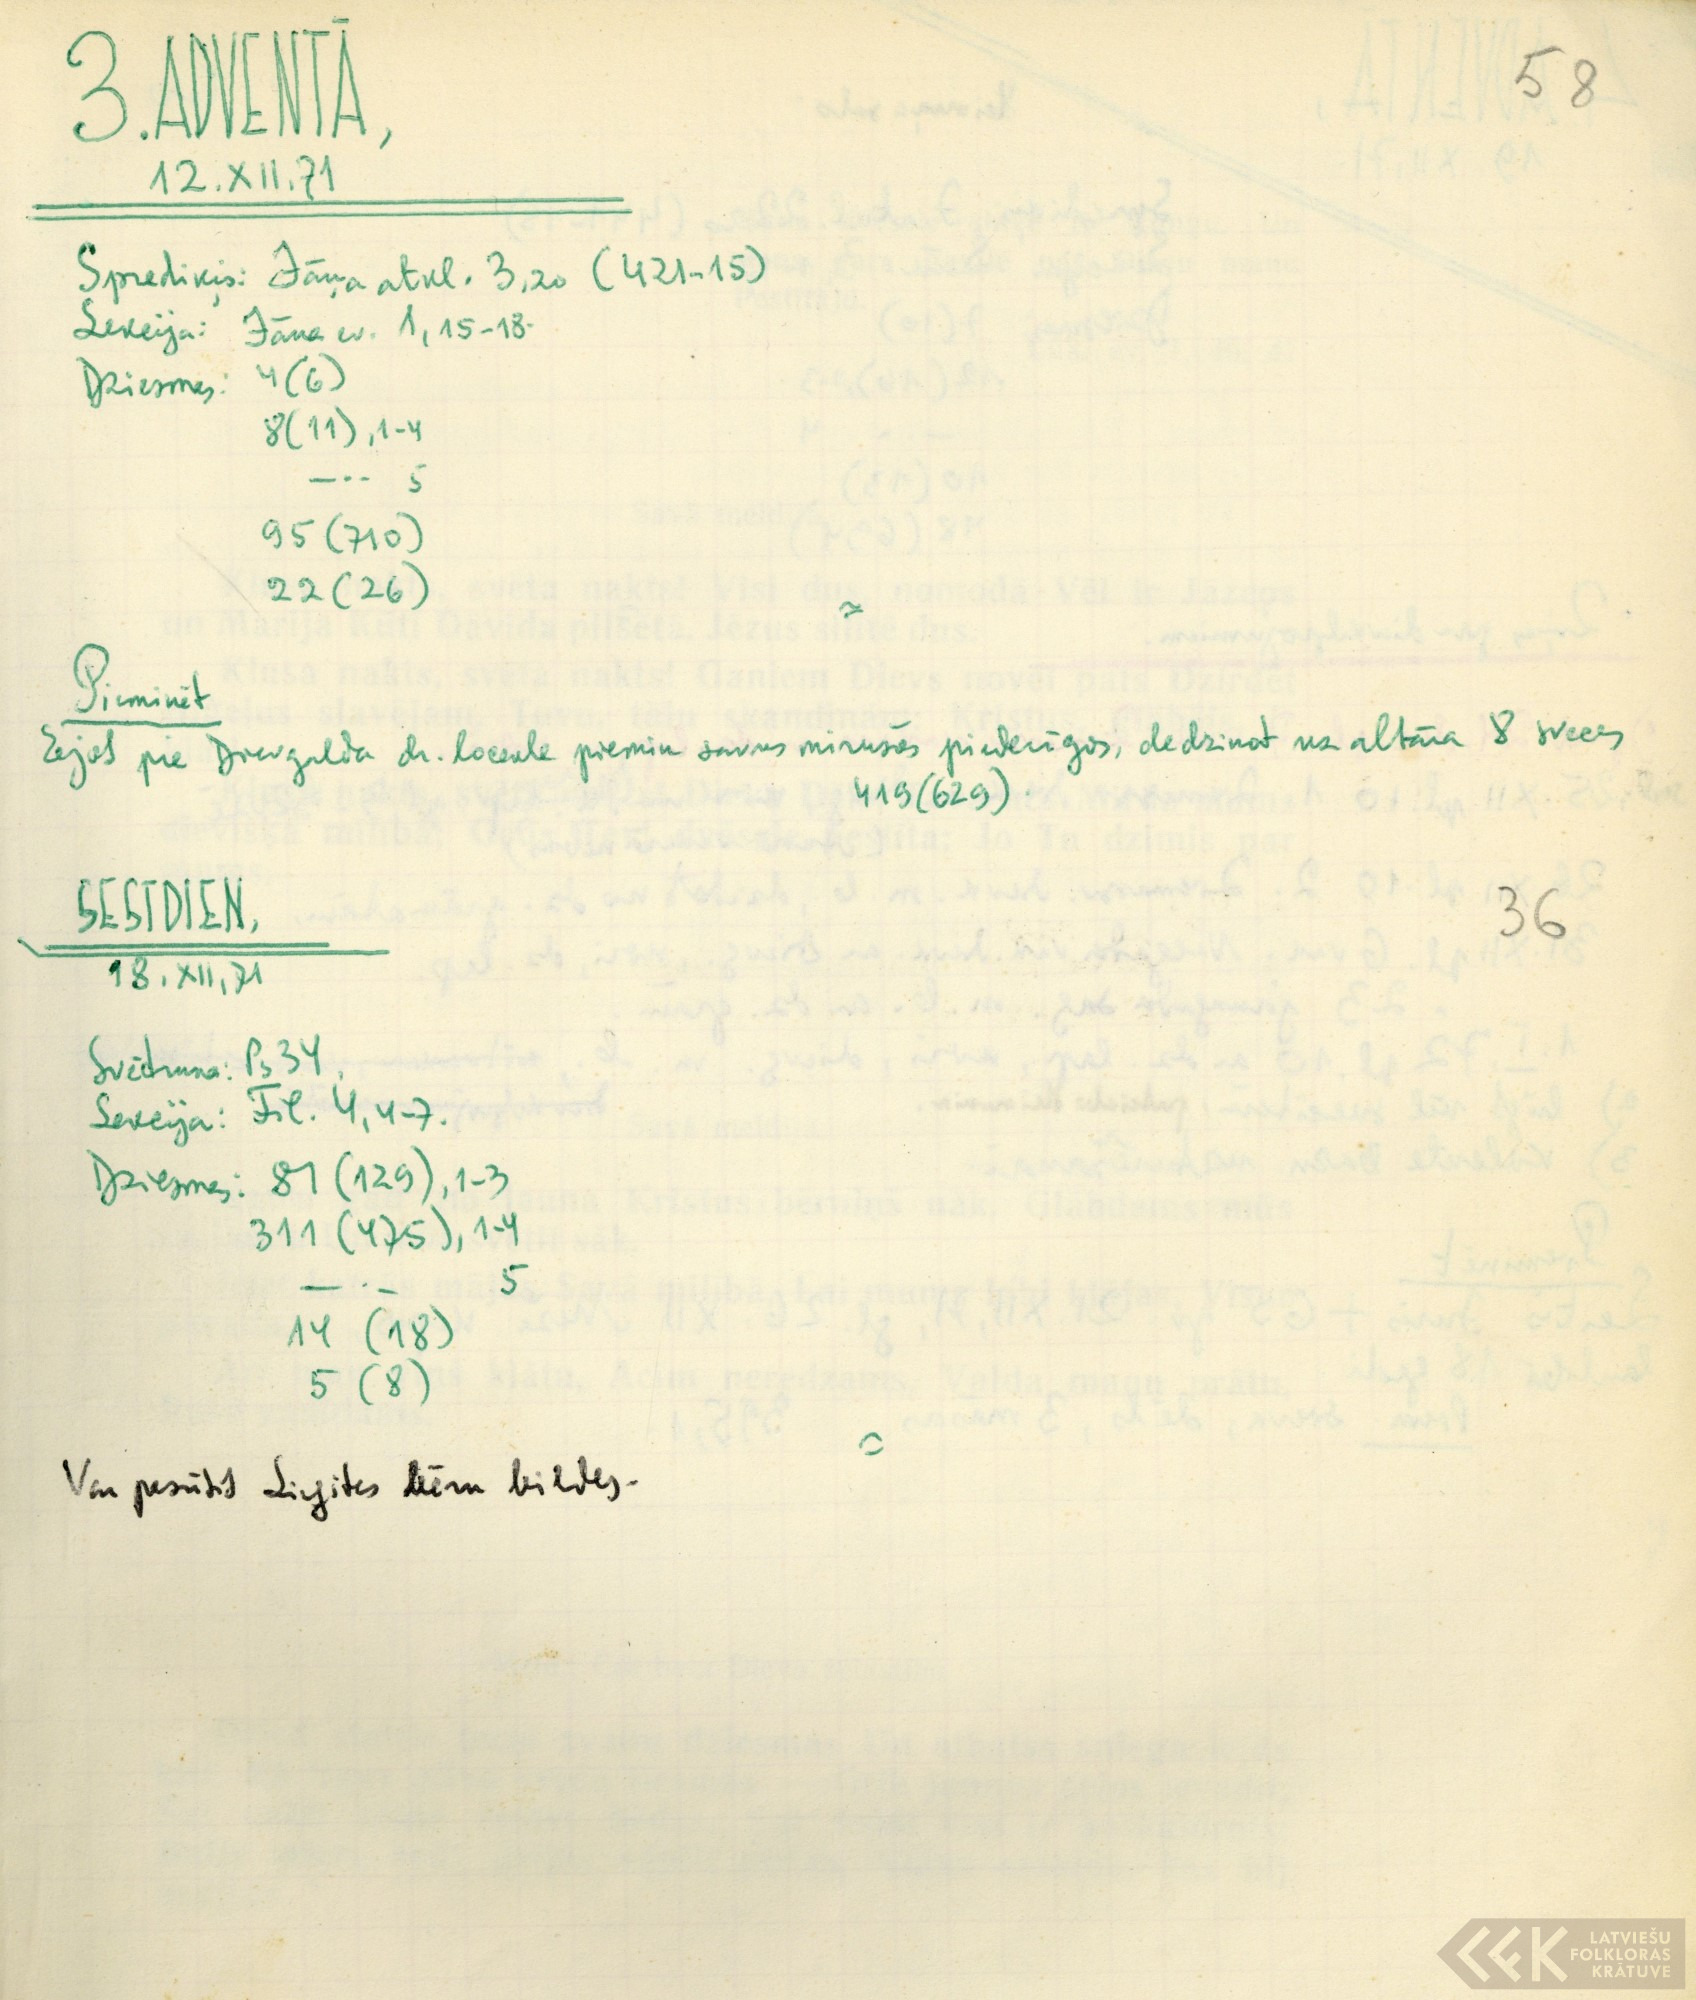 3. ADVENTĀ,
58
12.XII.71
Sprediķis: Jāņa atkl. 3,20 (421-15)
Lekcija: Jāņa ev. 1, 15-18.
Dziesmas: 4(6)
8(11), 1-4
—·· 5
95(710)
22(26)
Pieminēt
Ejot pie Dievgalda dr. locekle piemin savus mirušos piederīgos, dedzinot uz altāra 8 sveces
419(629).
SESTDIEN,
36
18.XII.71
Svētruna: Ps 34.
Lekcija: Fil. 4, 4-7.
Dziesmas: 81 (129), 1-3
311 (475), 1-4
— · – 5
14 (18)
5 (8)
Var pasūtīt Ligitas bēru bildes.
LATVIEŠU
FOLKLORAS
KRĀTUVE